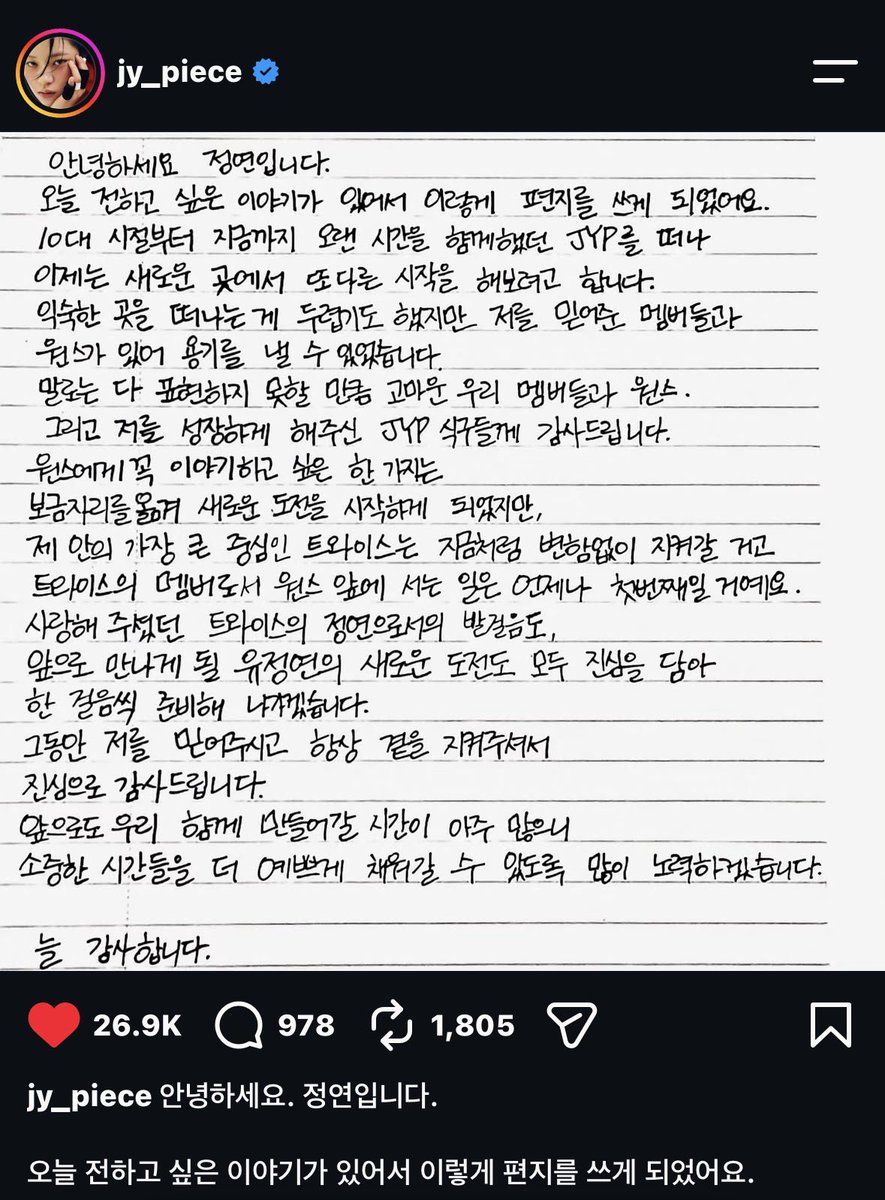 jy_piece
안녕하세요 정연입니다.
오늘 전하고 싶은 이야기가 있어서 이렇게 편지를 쓰게 되었어요.
10대 시절부터 지금까지 오랜 시간을 함께했던 JYP를 떠나
이제는 새로운 곳에서 또다른 시작을 해보려고 합니다.
익숙한 곳을 떠나는게 두렵기도 했지만 저를 믿어준 멤버들과
원스가 있어 용기를 낼 수 있었습니다.
말로는 다 표현하지 못할 만큼 고마운 우리 멤버들과 원스.
그리고 저를 성장하게 해주신 JYP 식구들께 감사드립니다.
원스에게 꼭 이야기하고 싶은 한 가지는
보금자리를 옮겨 새로운 도전을 시작하게 되었지만,
제 안의 가장 큰 중심인 트와이스는 지금처럼 변함없이 지켜갈 거고
트와이스의 멤버로서 원스 앞에 서는 일은 언제나 첫번째일 거예요.
사랑해 주셨던 트와이스의 정연으로서의 발걸음도,
앞으로 만나게 될 유정연의 새로운 도전도 모두 진심을 담아
한 걸음씩 준비해 나가겠습니다.
그동안 저를 믿어주시고 항상 곁을 지켜주셔서
진심으로 감사드립니다.
앞으로도 우리 함께 만들어갈 시간이 아주 많으니
소중한 시간들을 더 예쁘게 채워갈 수 있도록 많이 노력하겠습니다.
늘 감사합니다.
26.9K 978 1,805
jy_piece 안녕하세요. 정연입니다.
오늘 전하고 싶은 이야기가 있어서 이렇게 편지를 쓰게 되었어요.